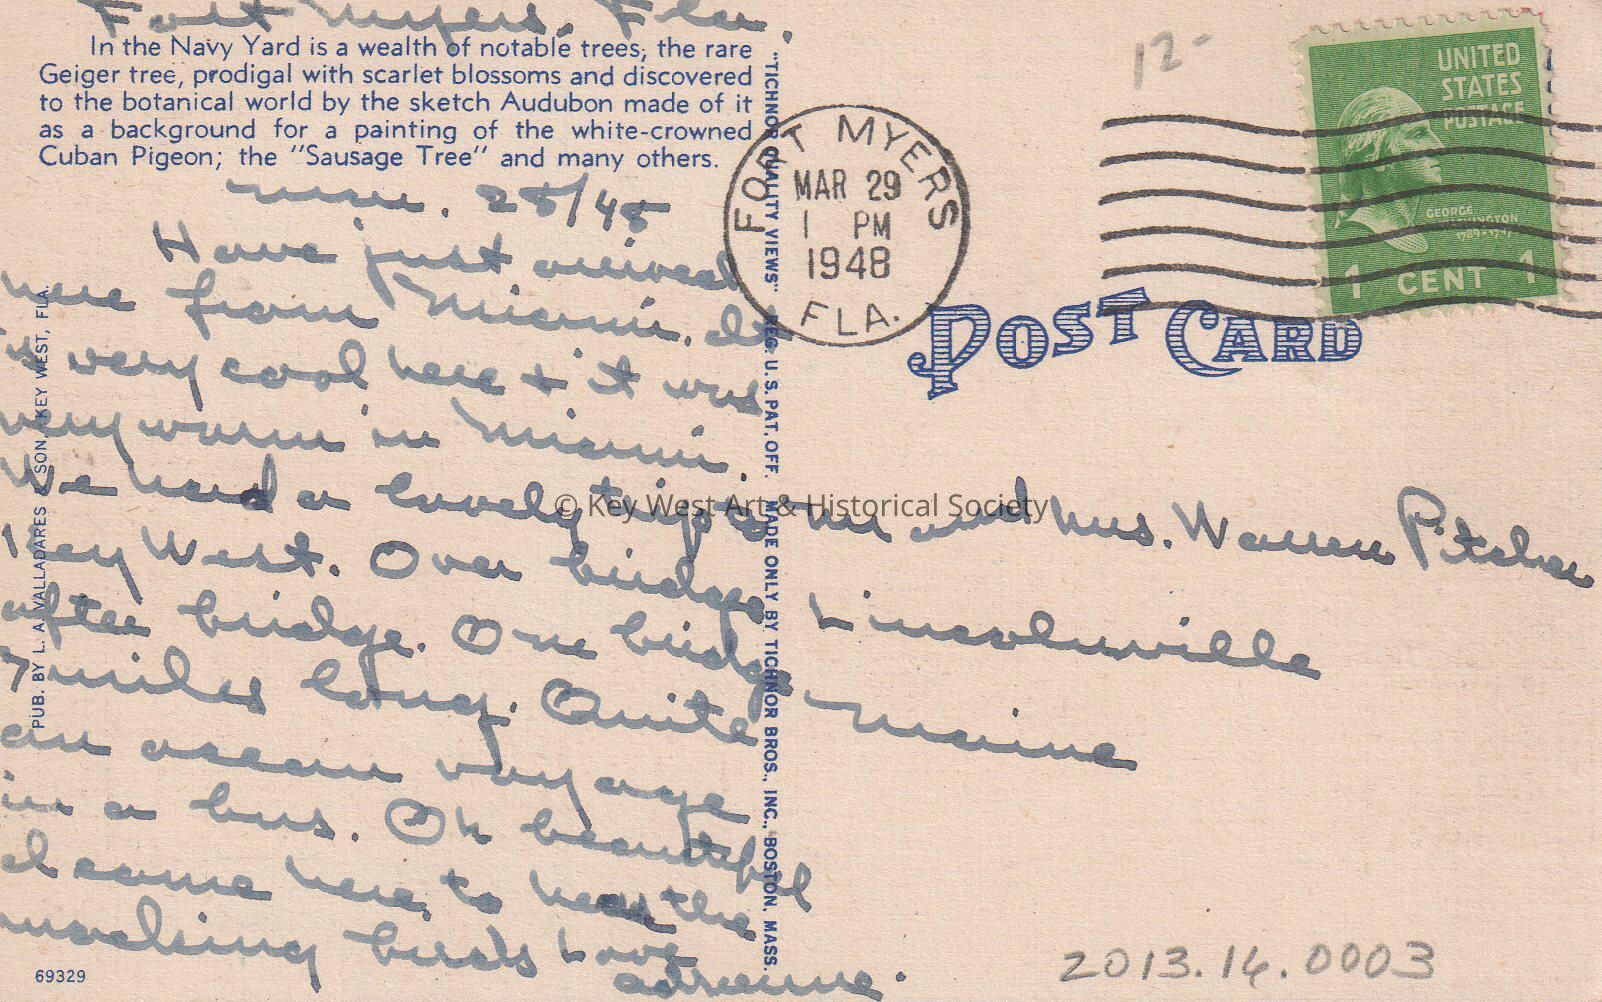 Fort Myers, Fla.
In the Navy Yard is a wealth of notable trees; the rare
Geiger tree, prodigal with scarlet blossoms and discovered
to the botanical world by the sketch Audubon made of it
as a background for a painting of the white-crowned
Cuban Pigeon; the "Sausage Tree" and many others.
Mar. 28/48
Have just arrived
here from Miami. It
is very cool here + it was
very warm in Miami.
We had a lovely trip to
Key West. Over bridge
after bridge. One bridge
7 miles long. Quite
an ocean voyage
in a bus. Oh beautiful
I came here to hear the
mocking birds Love
Adrienne.
69329
PUB. BY L. A. VALLADARES & SON, KEY WEST, FLA.
"TICHNOR QUALITY VIEWS" REG. U. S. PAT. OFF. MADE ONLY BY TICHNOR BROS., INC., BOSTON, MASS.
FORT MYERS
MAR 29
1 PM
1948
FLA.
12-
UNITED
STATES
POSTAGE
GEORGE
WASHINGTON
1789-1797
1 CENT 1
POST CARD
© Key West Art & Historical Society
Mr and Mrs. Warren Pitcher
Lincolnville
Maine
2013.14.0003